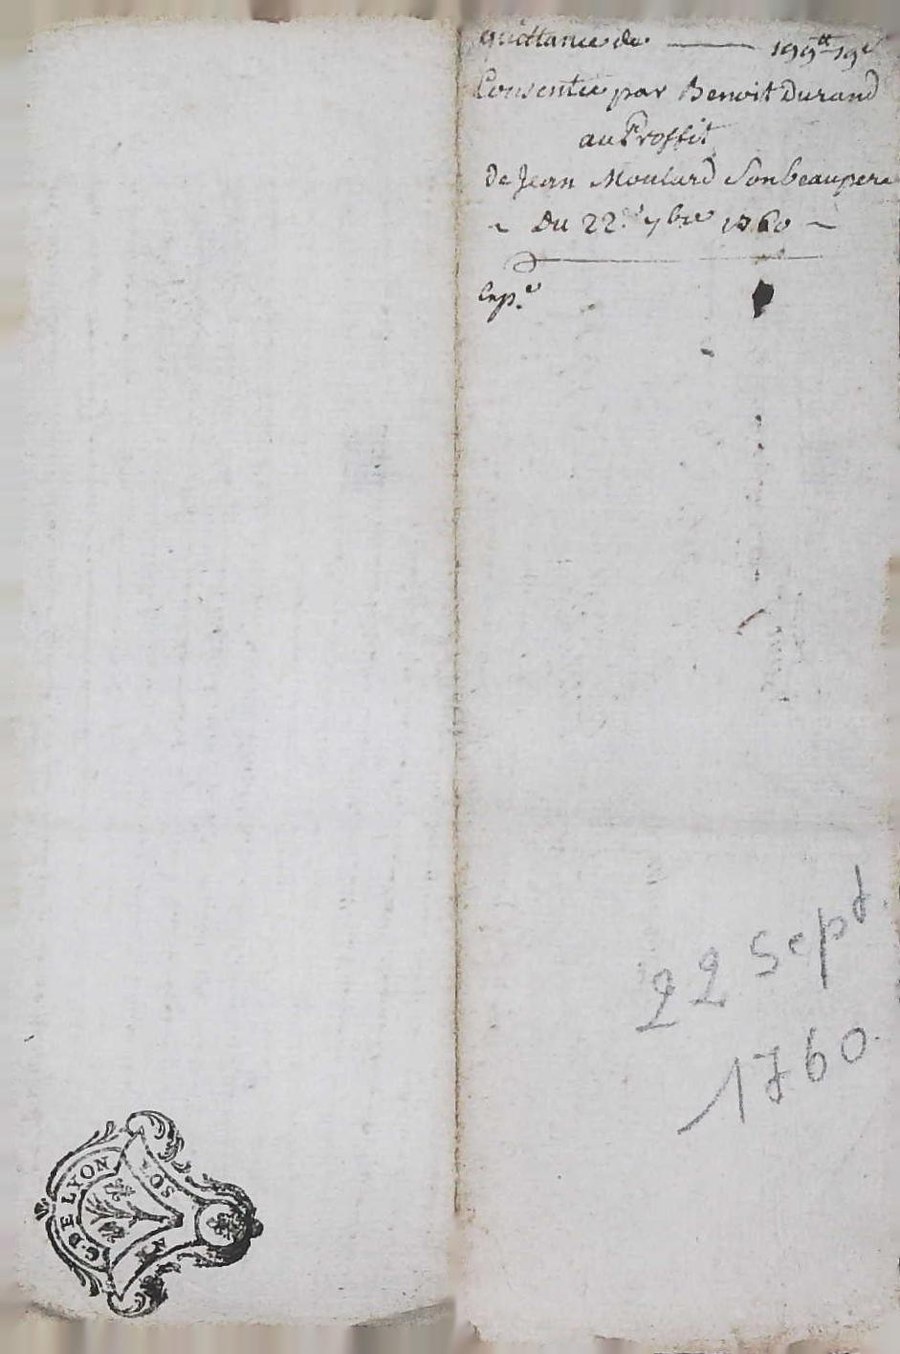 quittance de — 199tt 19s
Consentie par Benoit Durand
au Proffit
de Jean Moulard Son beaupere
~ Du 22e 7bre 1760 ~
Exp.e
22 Sept.
1760.
G. DE LYON
SOLS